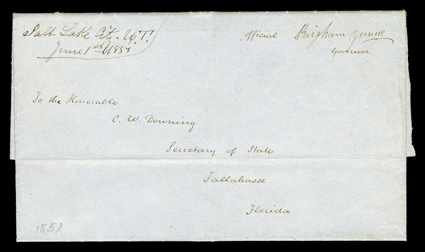 Salt Lake City. U.T.
June 1st 1857
official Brigham Young
Governor
To the Honorable
C. W. Downing
Secretary of State
Tallahasse
Florida